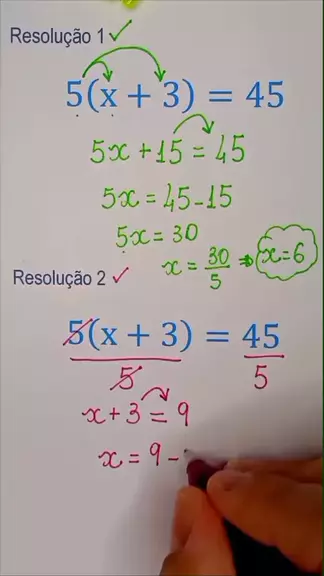 Resolução 1 ✓
5(x + 3) = 45
5x + 15 = 45
5x = 45 - 15
5x = 30
x = 30/5 ⇒ x = 6
Resolução 2 ✓
5(x + 3)/5 = 45/5
x + 3 = 9
x = 9 -